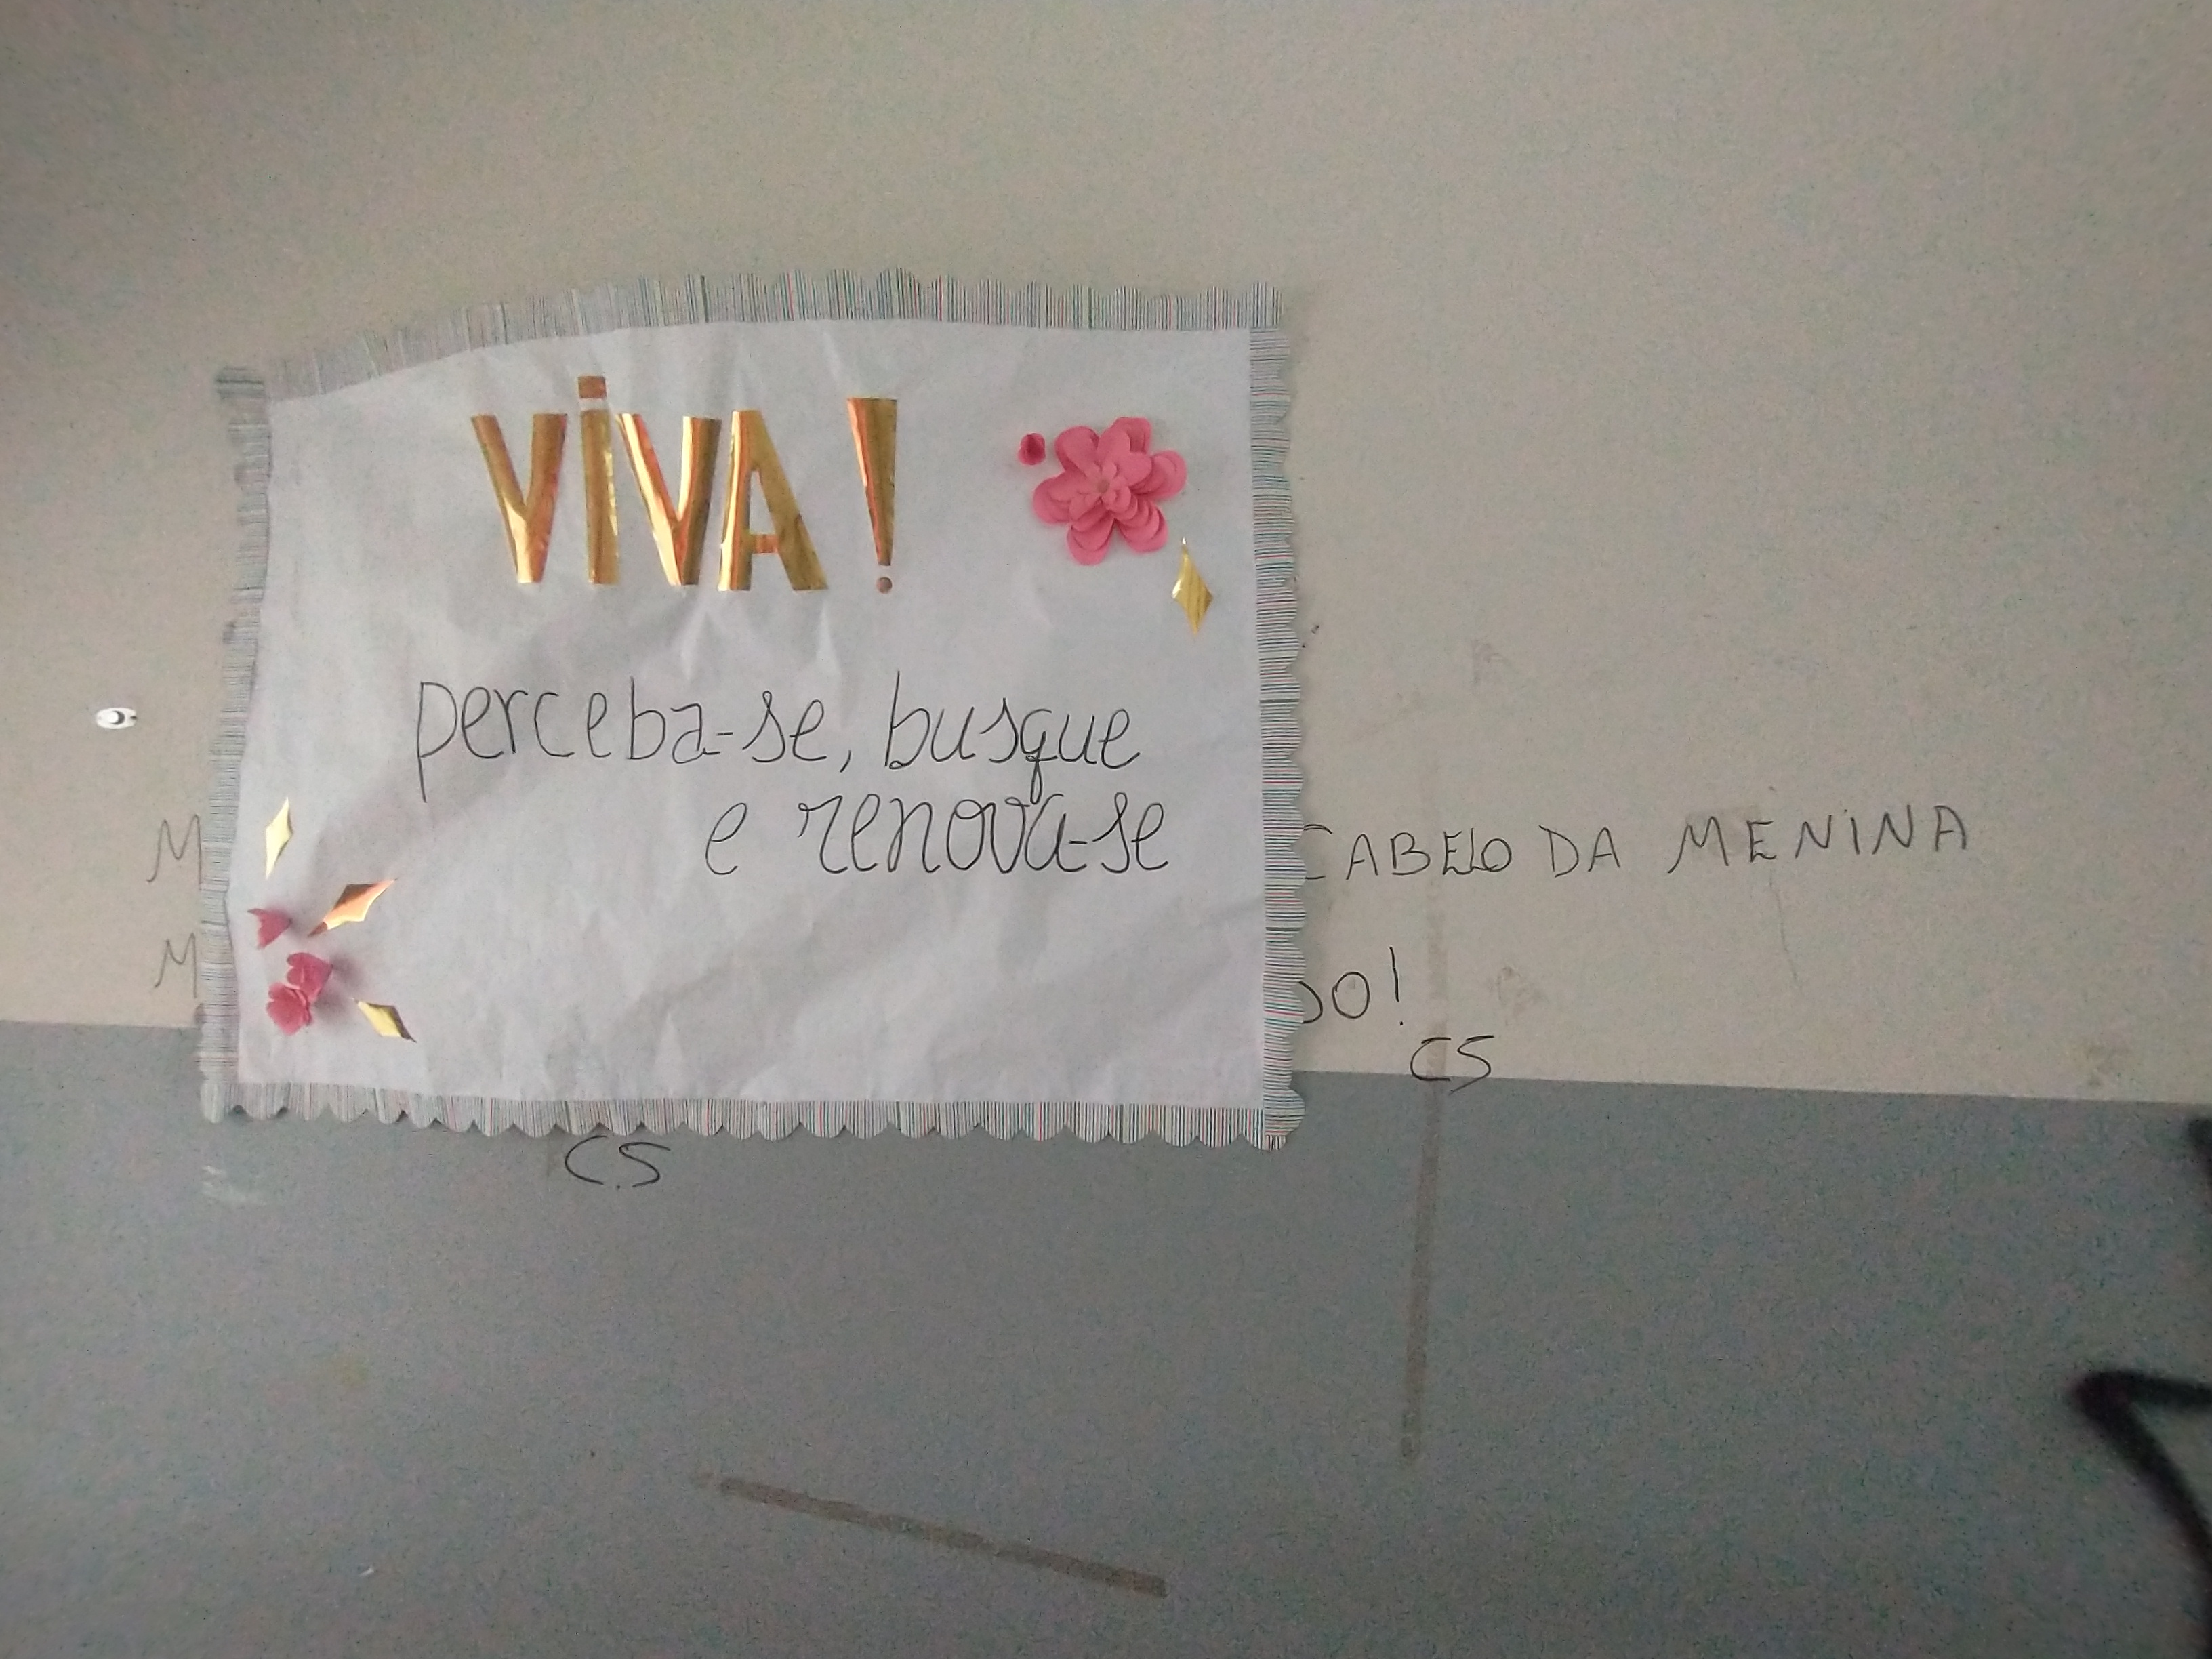 VIVA!
perceba-se, busque
e renova-se
CABELO DA MENINA
DO!
CS
CS